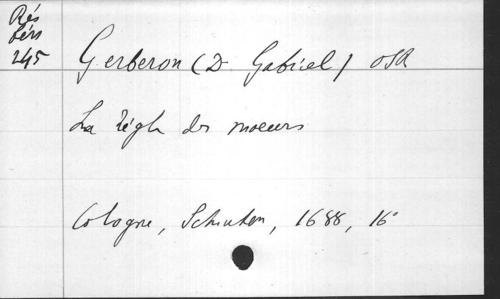 Rés
245
Gerberon (D. Gabriel) OSB
La règle des moeurs
Cologne, Schouten, 1688, 16°